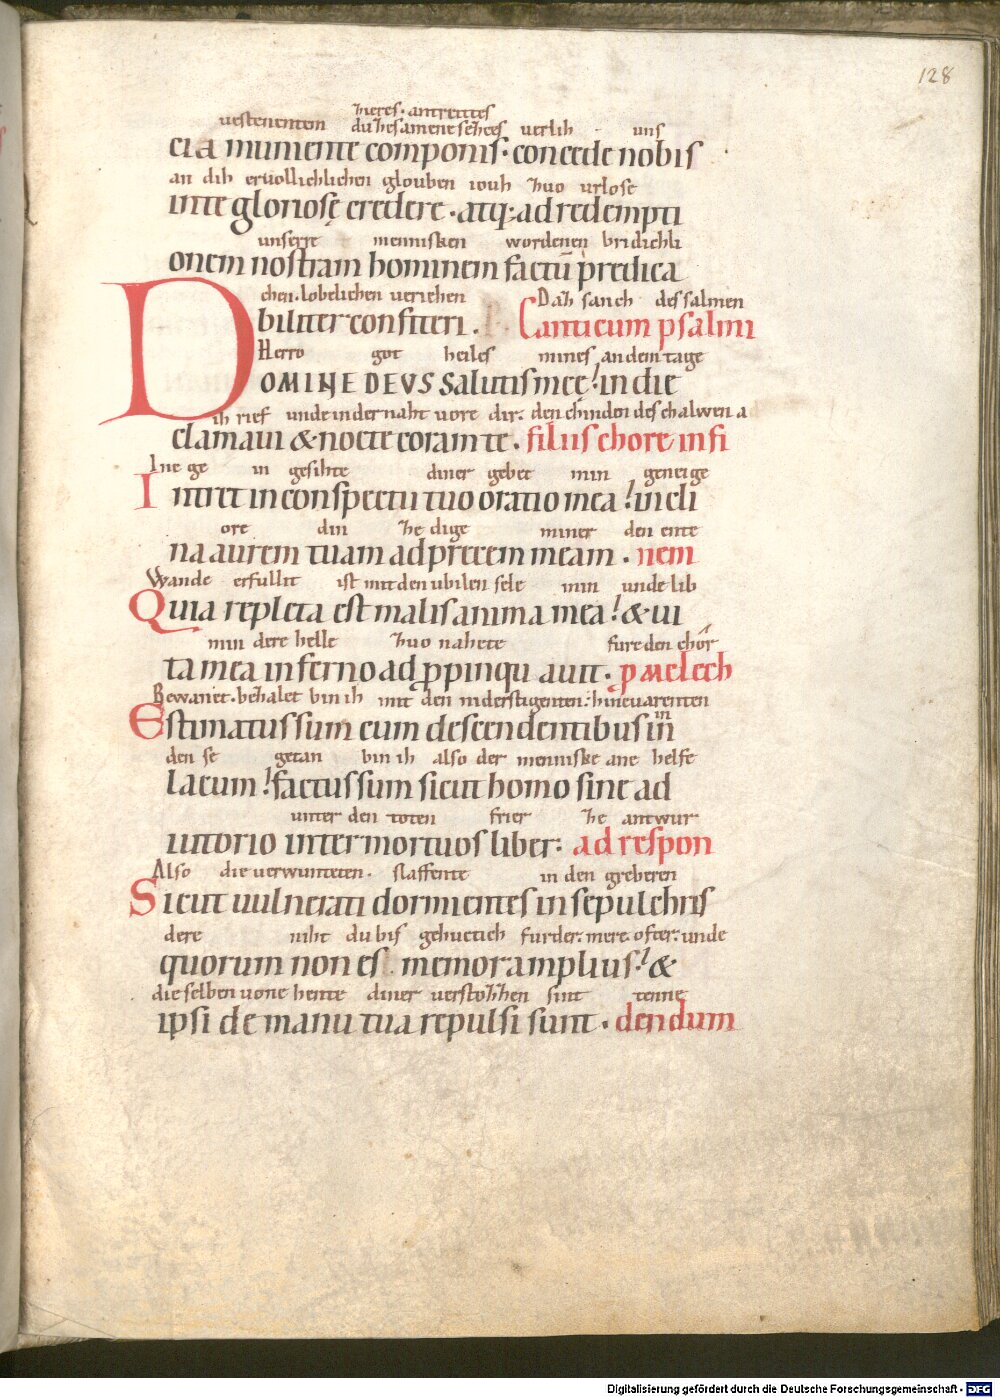 128
heres. antreites
uestenenton duhesamenesehees uerlih uns
cia munimente componis. concede nobis
an dih eruollichlichen glouben iouh huo urlose
inte gloriosę credere. atq; ad redempti
unserre mennisken wordenen bridichli
onem nostram hominem factū predica
chen. lobelichen ueriehen Dah sanch des salmen
biliter confiteri. Canticum psalmi
Herro got heiles mines andemtage
DOMINE DEVS salutis meę! in die
ih rief unde in der naht uore dir. den chinden des chalwen a
clamaui & nocte coram te. filiis chore in fi
Ine ge in gesihte diner gebet min geneige
Intret in conspectu tuo oratio mea! incli
ore din he dige miner den ente
na aurem tuam ad precem meam. nem
Wande erfullit ist mit den ubilen sele min unde lib
Quia repleta est malis anima mea! & ui
min dere helle huo nahete fure den chor
ta mea inferno ad ppinqu auit. p melech
Bewanet. behalet bin ih mit den niderstigenten. hineuarenten
Estimatus sum cum descendentibus in
den se getan bin ih also der menniske ane helfe
lacum! factus sum sicut homo sine ad
unter den toten frier he antwur
iutorio inter mortuos liber. ad respon
Also die uerwunteten. slaffente in den greberen
Sicut uulnerati dormientes in sepulchris
dere niht du bis gehuctich furder. mere. ofter. unde
quorum non es memor amplius! &
die selben uone hente diner verstohhen sint tenne
ipsi de manu tua repulsi sunt. dendum
Digitalisierung gefördert durch die Deutsche Forschungsgemeinschaft - DFG